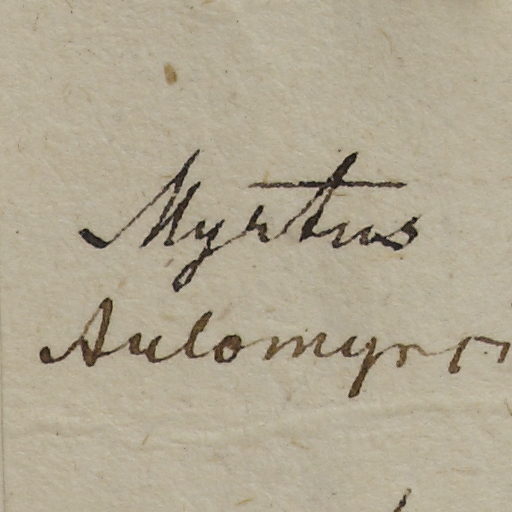 Myrtus
Aulomyrci